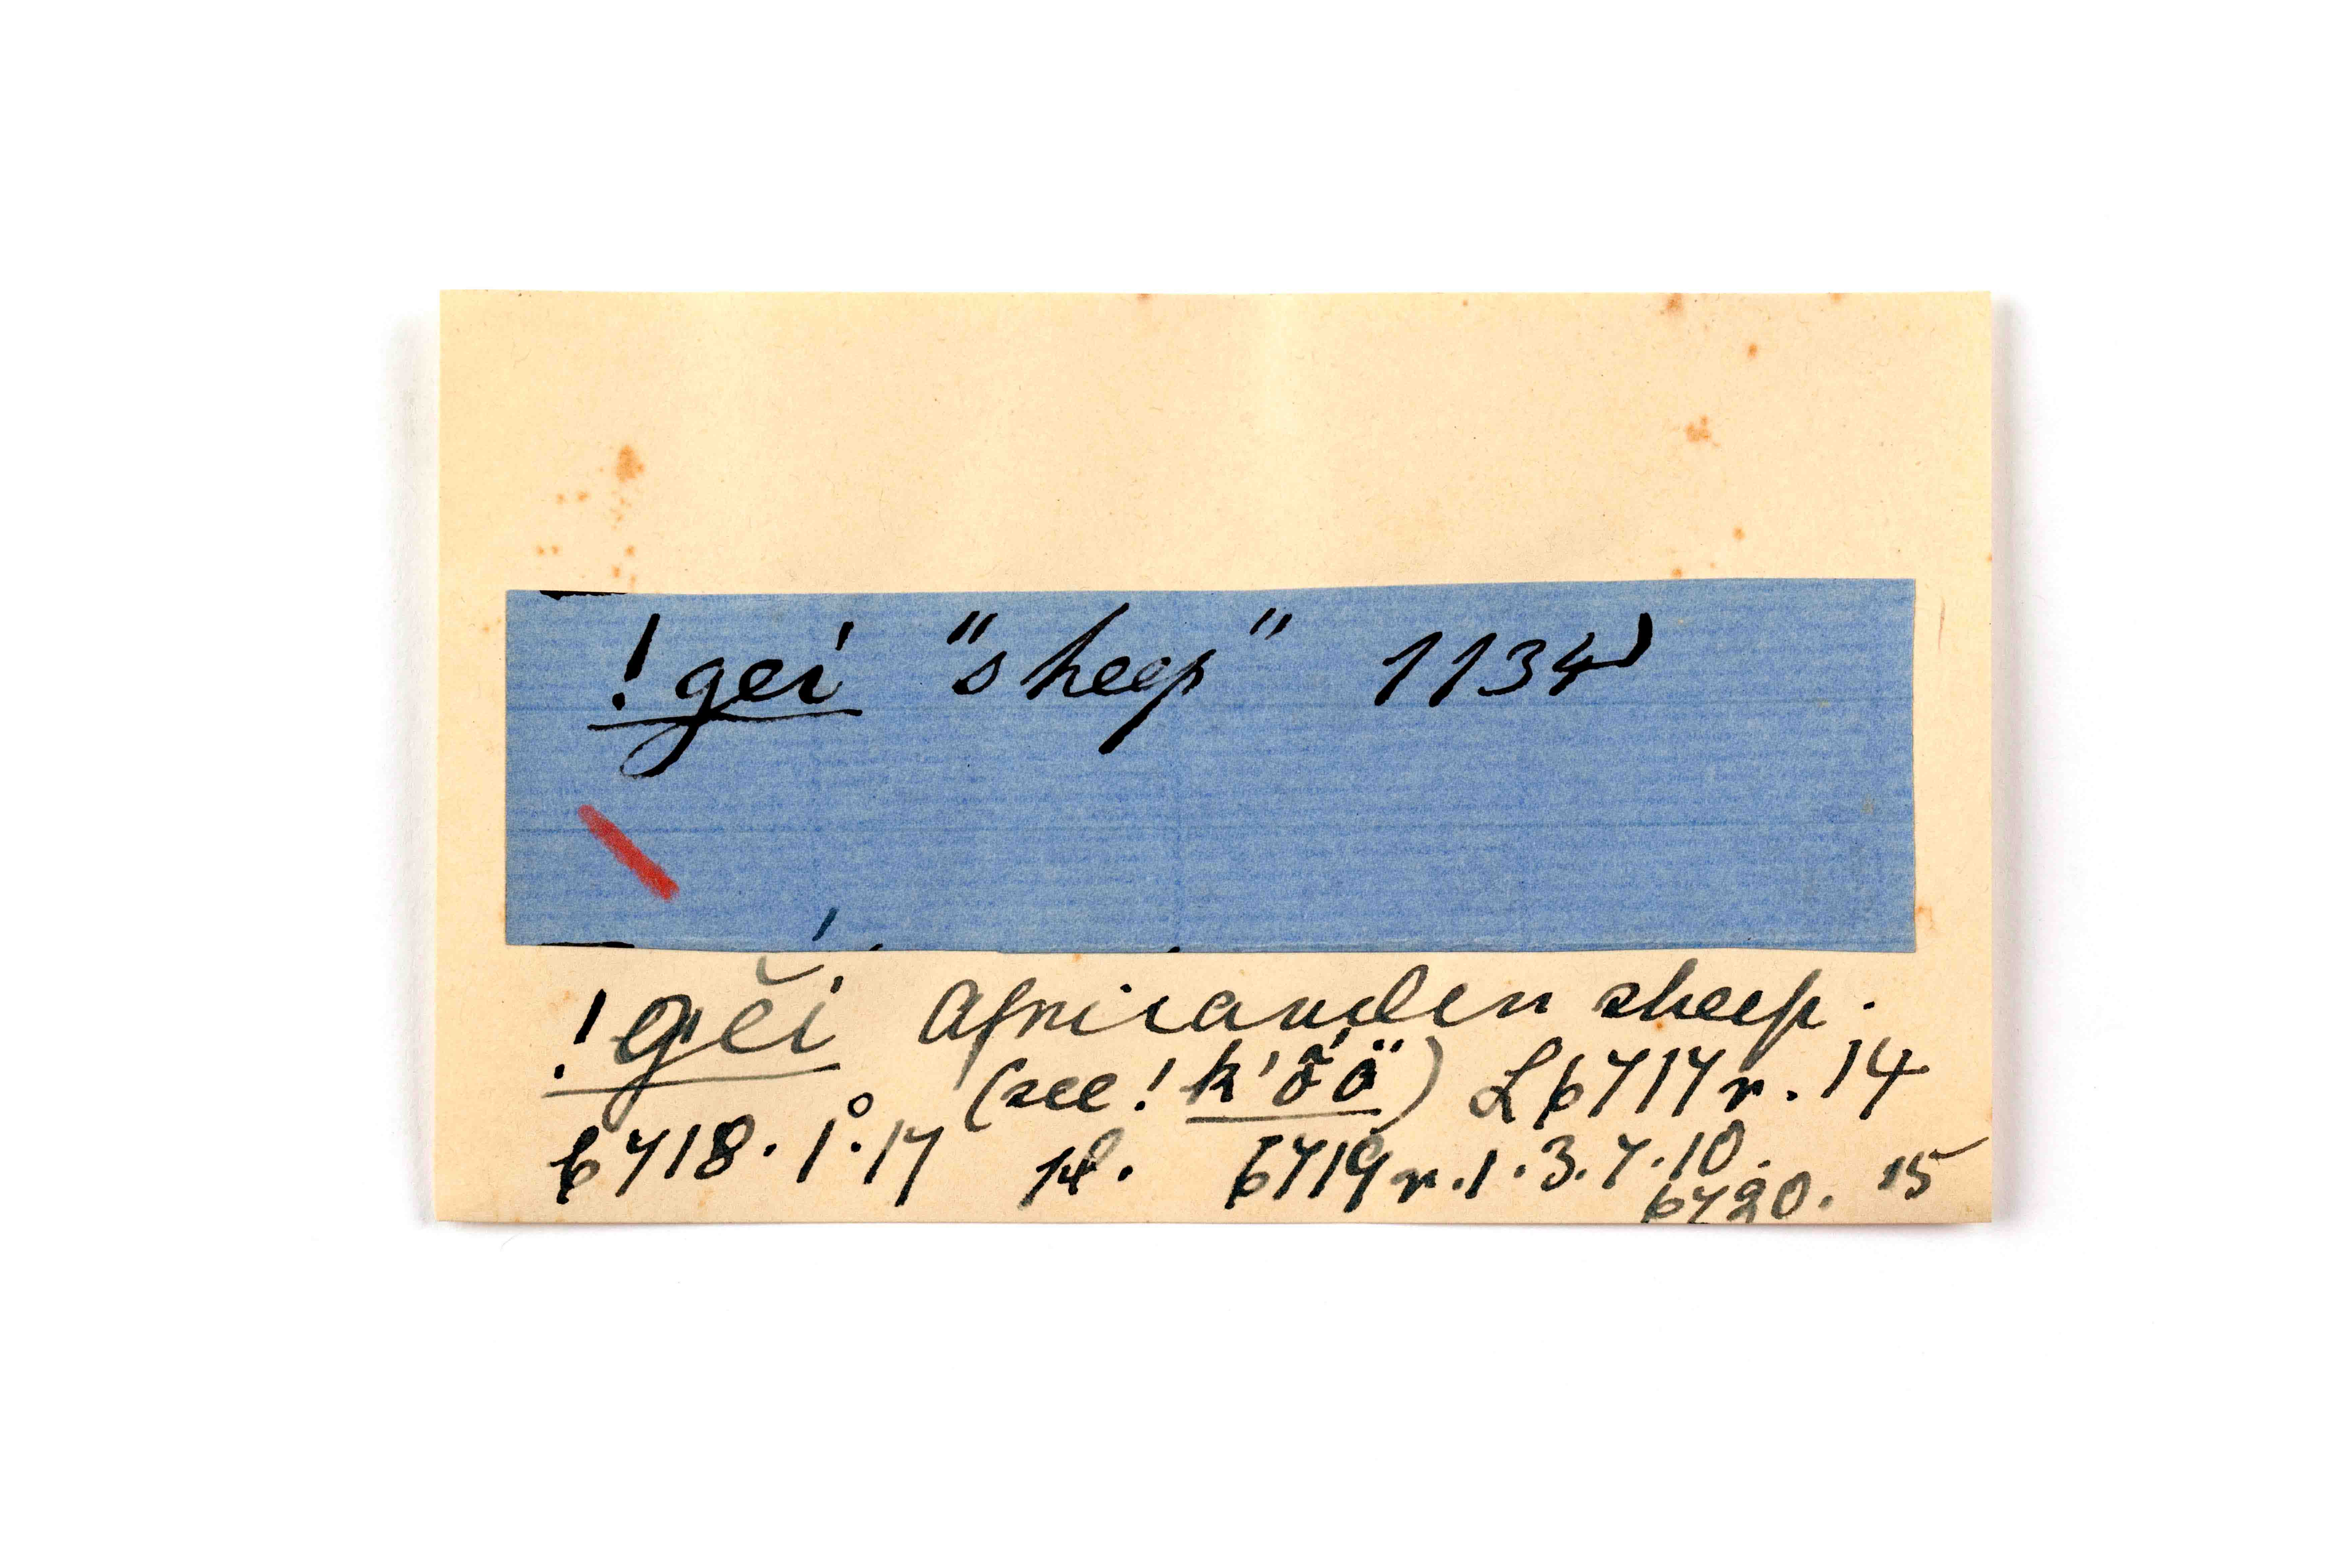 !gei "sheep" 1134
!gĕi Africander sheep.
(see !k'õö) L 6717 r. 14
6718. 1°. 17 pl. 6719 r. 1. 3. 7. 10.
6720. 15